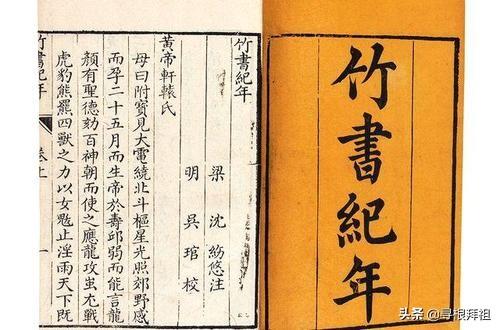 竹書紀年
竹書紀年
梁 沈 約 注
明 吳 琯 校
黃帝軒轅氏
母曰附寶見大電繞北斗樞星光照郊野感
而孕二十五月而生帝於壽邱弱而能言龍
顏有聖德劾百神朝而使之應龍攻蚩尤戰
虎豹熊羆四獸之力以女魃止淫雨天下既
竹書紀年 卷上 一
头条 @寻根拜祖